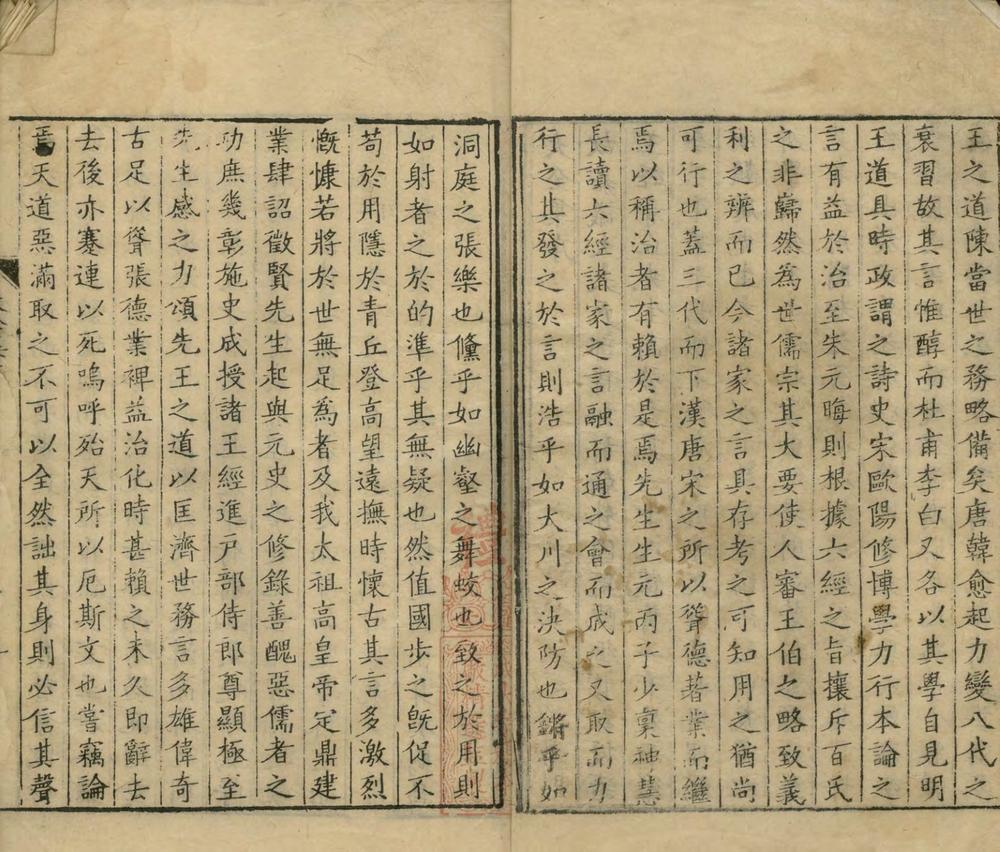 王之道陳當世之務略備矣唐韓愈起力變八代之
衰習故其言惟醇而杜甫李白又各以其學自見明
王道具時政謂之詩史宋歐陽修博學力行本論之
言有益於治至朱元晦則根據六經之旨攘斥百氏
之非巋然為世儒宗其大要使人審王伯之略致義
利之辨而已今諸家之言具存考之可知用之猶尚
可行也蓋三代而下漢唐宋之所以聳德著業而繼
焉以稱治者有賴於是焉先生生元丙子少稟神慧
長讀六經諸家之言融而通之會而成之又取而力
行之其發之於言則浩乎如大川之決防也鏘乎如
洞庭之張樂也儵乎如幽壑之舞蛟也致之於用則
如射者之於的準乎其無疑也然值國步之旣促不
苟於用隱於青丘登高望遠撫時懷古其言多激烈
慨慷若將於世無足為者及我太祖高皇帝定鼎建
業肆詔徵賢先生起與元史之修錄善醜惡儒者之
功庶幾彰施史成授諸王經進戶部侍郎尊顯極至
先生感之力頌先王之道以匡濟世務言多雄偉奇
古足以聳張德業裨益治化時甚賴之未久即辭去
去後亦蹇連以死嗚呼殆天所以厄斯文也嘗竊論
焉天道惡滿取之不可以全然詘其身則必信其聲